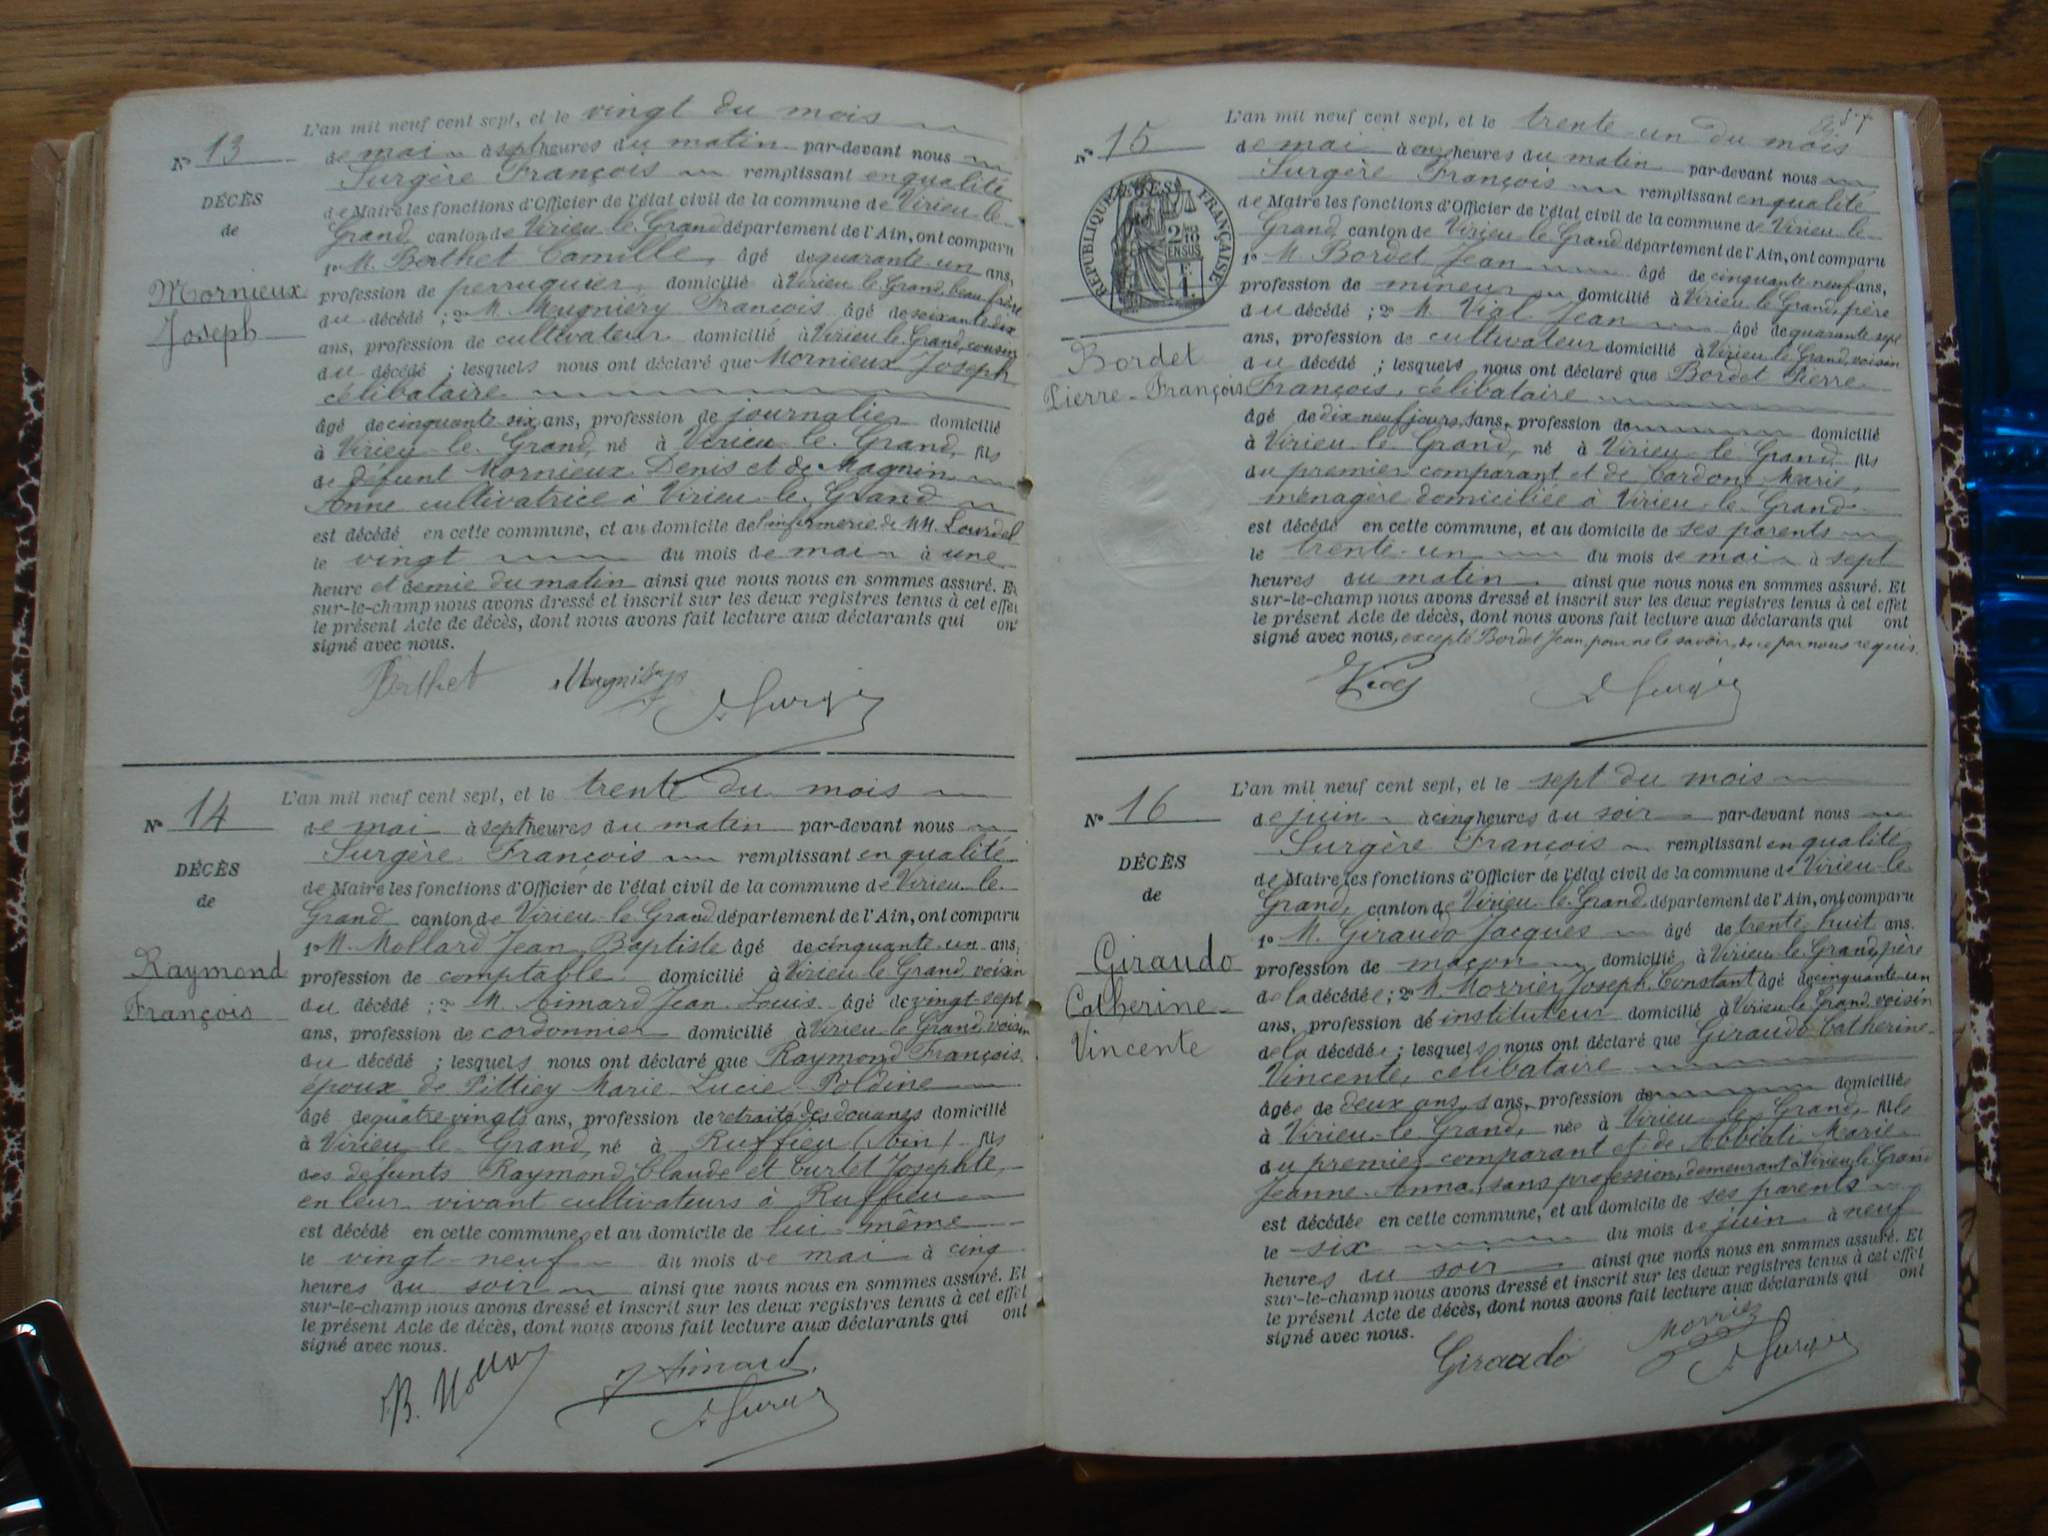 L'an mil neuf cent sept, et le vingt du mois
N° 13
de mai à sept heures du matin par-devant nous
Surgère François remplissant en qualité
DÉCÈS
de Maire les fonctions d'Officier de l'état civil de la commune de Virieu-le-
de
Grand canton de Virieu-le-Grand département de l'Ain, ont comparu
1° M. Berthet Camille, âgé de quarante-un ans,
Mornieux
profession de perruquier, domicilié à Virieu-le-Grand, beau-frère
du décédé ; 2° M. Mugniéry François âgé de soixante-dix
Joseph
ans, profession de cultivateur domicilié à Virieu-le-Grand, cousin
du décédé ; lesquels nous ont déclaré que Mornieux Joseph
célibataire
âgé de cinquante-six ans, profession de journalier domicilié
à Virieu-le-Grand, né à Virieu-le-Grand, fils
de défunt Mornieux Denis et de Magnin
Anne cultivatrice à Virieu-le-Grand
est décédé en cette commune, et au domicile de l'infirmerie de MM. Lourdel
le vingt du mois de mai à une
heure et demie du matin ainsi que nous nous en sommes assuré. Et
sur-le-champ nous avons dressé et inscrit sur les deux registres tenus à cet effet
le présent Acte de décès, dont nous avons fait lecture aux déclarants qui ont
signé avec nous.
Berthet Mugniéry F. Surgère
L'an mil neuf cent sept, et le trente du mois
N° 14
de mai à sept heures du matin par-devant nous
Surgère François remplissant en qualité
DÉCÈS
de Maire les fonctions d'Officier de l'état civil de la commune de Virieu-le-
de
Grand canton de Virieu-le-Grand département de l'Ain, ont comparu
1° M. Mollard Jean-Baptiste âgé de cinquante-un ans,
Raymond
profession de comptable domicilié à Virieu-le-Grand, voisin
François
du décédé ; 2° M. Aimard Jean-Louis âgé de vingt-sept
ans, profession de cordonnier domicilié à Virieu-le-Grand voisin
du décédé ; lesquels nous ont déclaré que Raymond François,
époux de Pittiey Marie-Lucie-Poldine
âgé de quatre-vingts ans, profession de retraité des douanes domicilié
à Virieu-le-Grand, né à Ruffieu (Ain) fils
des défunts Raymond Claude et Curtet Josephte,
en leur vivant cultivateurs à Ruffieu
est décédé en cette commune, et au domicile de lui-même
le vingt-neuf du mois de mai à cinq
heures du soir ainsi que nous nous en sommes assuré. Et
sur-le-champ nous avons dressé et inscrit sur les deux registres tenus à cet effet
le présent Acte de décès, dont nous avons fait lecture aux déclarants qui ont
signé avec nous.
J. Aimard
L'an mil neuf cent sept, et le trente-un du mois
N° 15
de mai à onze heures du matin par-devant nous
Surgère François remplissant en qualité
RÉPUBLIQUE FRANÇAISE
de Maire les fonctions d'Officier de l'état civil de la commune de Virieu-le-
Grand canton de Virieu-le-Grand département de l'Ain, ont comparu
1° M. Bordet Jean âgé de cinquante-neuf ans,
profession de mineur domicilié à Virieu-le-Grand, père
du décédé ; 2° M. Vial Jean âgé de quarante-sept
ans, profession de cultivateur domicilié à Virieu-le-Grand, voisin
Bordet
du décédé ; lesquels nous ont déclaré que Bordet Pierre-
Pierre-François
François, célibataire
âgé de dix-neuf jours, sans profession domicilié
à Virieu-le-Grand, né à Virieu-le-Grand fils
du premier comparant et de Cardone Marie,
ménagère domiciliée à Virieu-le-Grand
est décédé en cette commune, et au domicile de ses parents
le trente-un du mois de mai à sept
heures du matin ainsi que nous nous en sommes assuré. Et
sur-le-champ nous avons dressé et inscrit sur les deux registres tenus à cet effet
le présent Acte de décès, dont nous avons fait lecture aux déclarants qui ont
signé avec nous, excepté Bordet Jean pour ne le savoir, de ce par nous requis.
L'an mil neuf cent sept, et le sept du mois
N° 16
de juin à cinq heures du soir par-devant nous
Surgère François remplissant en qualité
DÉCÈS
de Maire les fonctions d'Officier de l'état civil de la commune de Virieu-le-
de
Grand, canton de Virieu-le-Grand département de l'Ain, ont comparu
1° M. Giraudo Jacques âgé de trente-huit ans.
Giraudo
profession de maçon domicilié à Virieu-le-Grand, père
Catherine-
de la décédée ; 2° M. Morrier Joseph-Constant âgé de cinquante-un
ans, profession d'instituteur domicilié à Virieu-le-Grand voisin
Vincente
de la décédée ; lesquels nous ont déclaré que Giraudo Catherine-
Vincente, célibataire
âgée de deux ans, sans profession domiciliée
à Virieu-le-Grand, née à Virieu-le-Grand, fille
du premier comparant et de Abbiati Marie-
Jeanne-Anna, sans profession, demeurant à Virieu-le-Grand
est décédée en cette commune, et au domicile de ses parents
le six du mois de juin à neuf
heures du soir ainsi que nous nous en sommes assuré. Et
sur-le-champ nous avons dressé et inscrit sur les deux registres tenus à cet effet
le présent Acte de décès, dont nous avons fait lecture aux déclarants qui ont
signé avec nous.
Giraudo